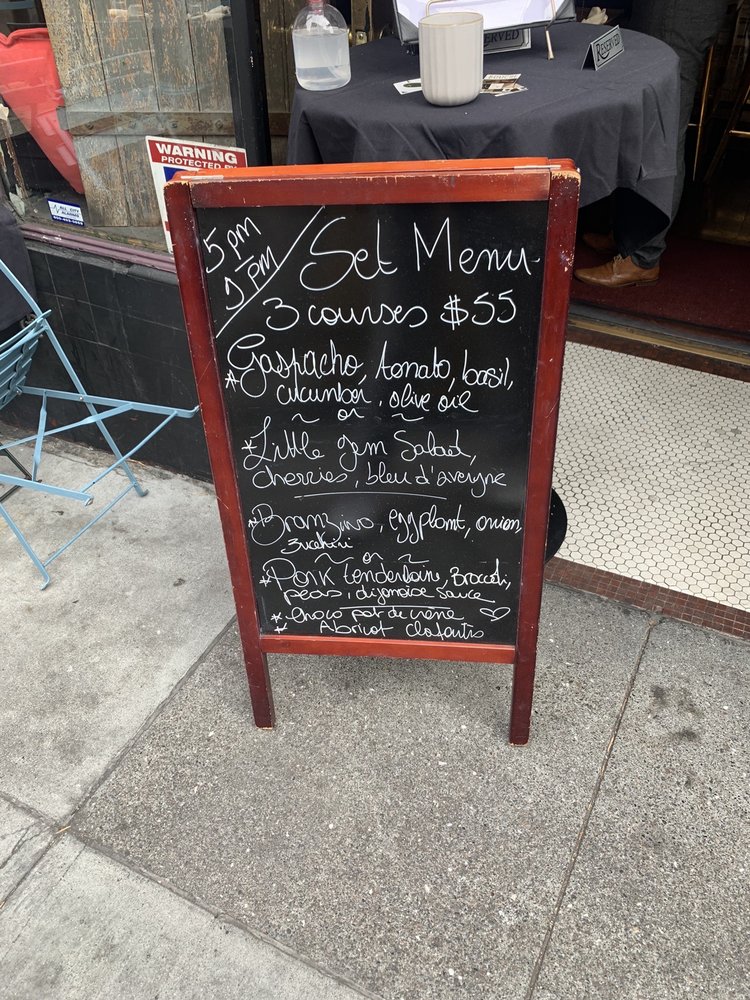 RESERVED
RESERVED
WARNING
PROTECTED BY
ALL CITY
ALARMS
5 pm
9 PM
Set Menu
3 courses $55
* Gaspacho, tomato, basil,
cucumber, olive oil
~ or ~
* Little gem Salad,
cherries, bleu d'avergne
* Branzino, eggplant, onion,
zucchini
~ or ~
* Pork tenderloine, Broccoli,
peas, dijonaise sauce
* Choco pot de crème
* Abricot Clafoutis